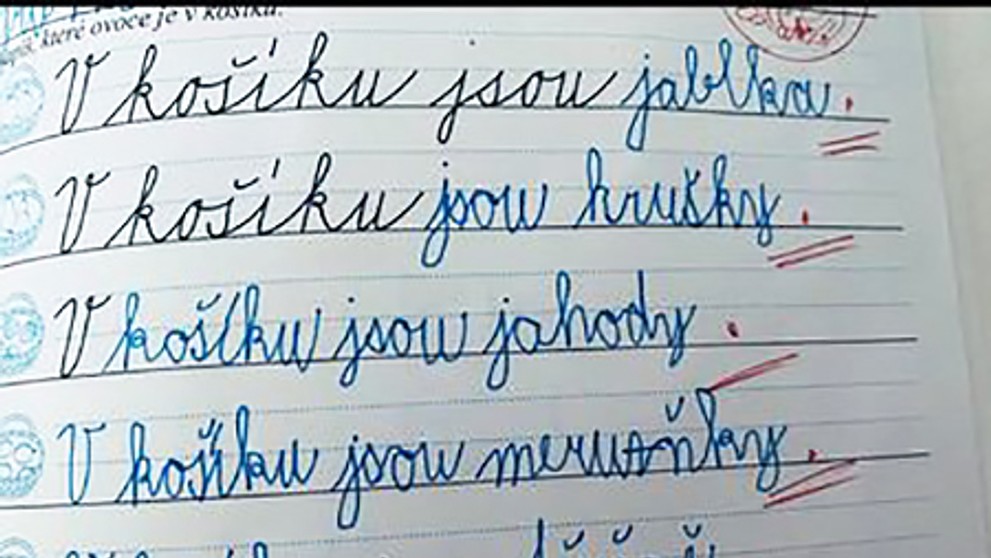 které ovoce je v košíku.
V košíku jsou jablka.
V košíku jsou hrušky.
V košíku jsou jahody.
V košíku jsou meruňky.